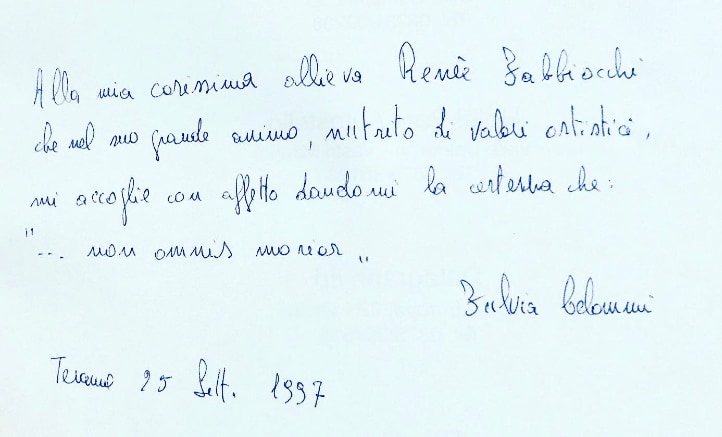 Alla mia carissima allieva Renèe Fabbiocchi
che nel suo grande animo, nutrito di valori artistici,
mi accoglie con affetto dandomi la certezza che:
"... non omnis moriar„
Fulvia Celommi
Teramo 25 Sett. 1997